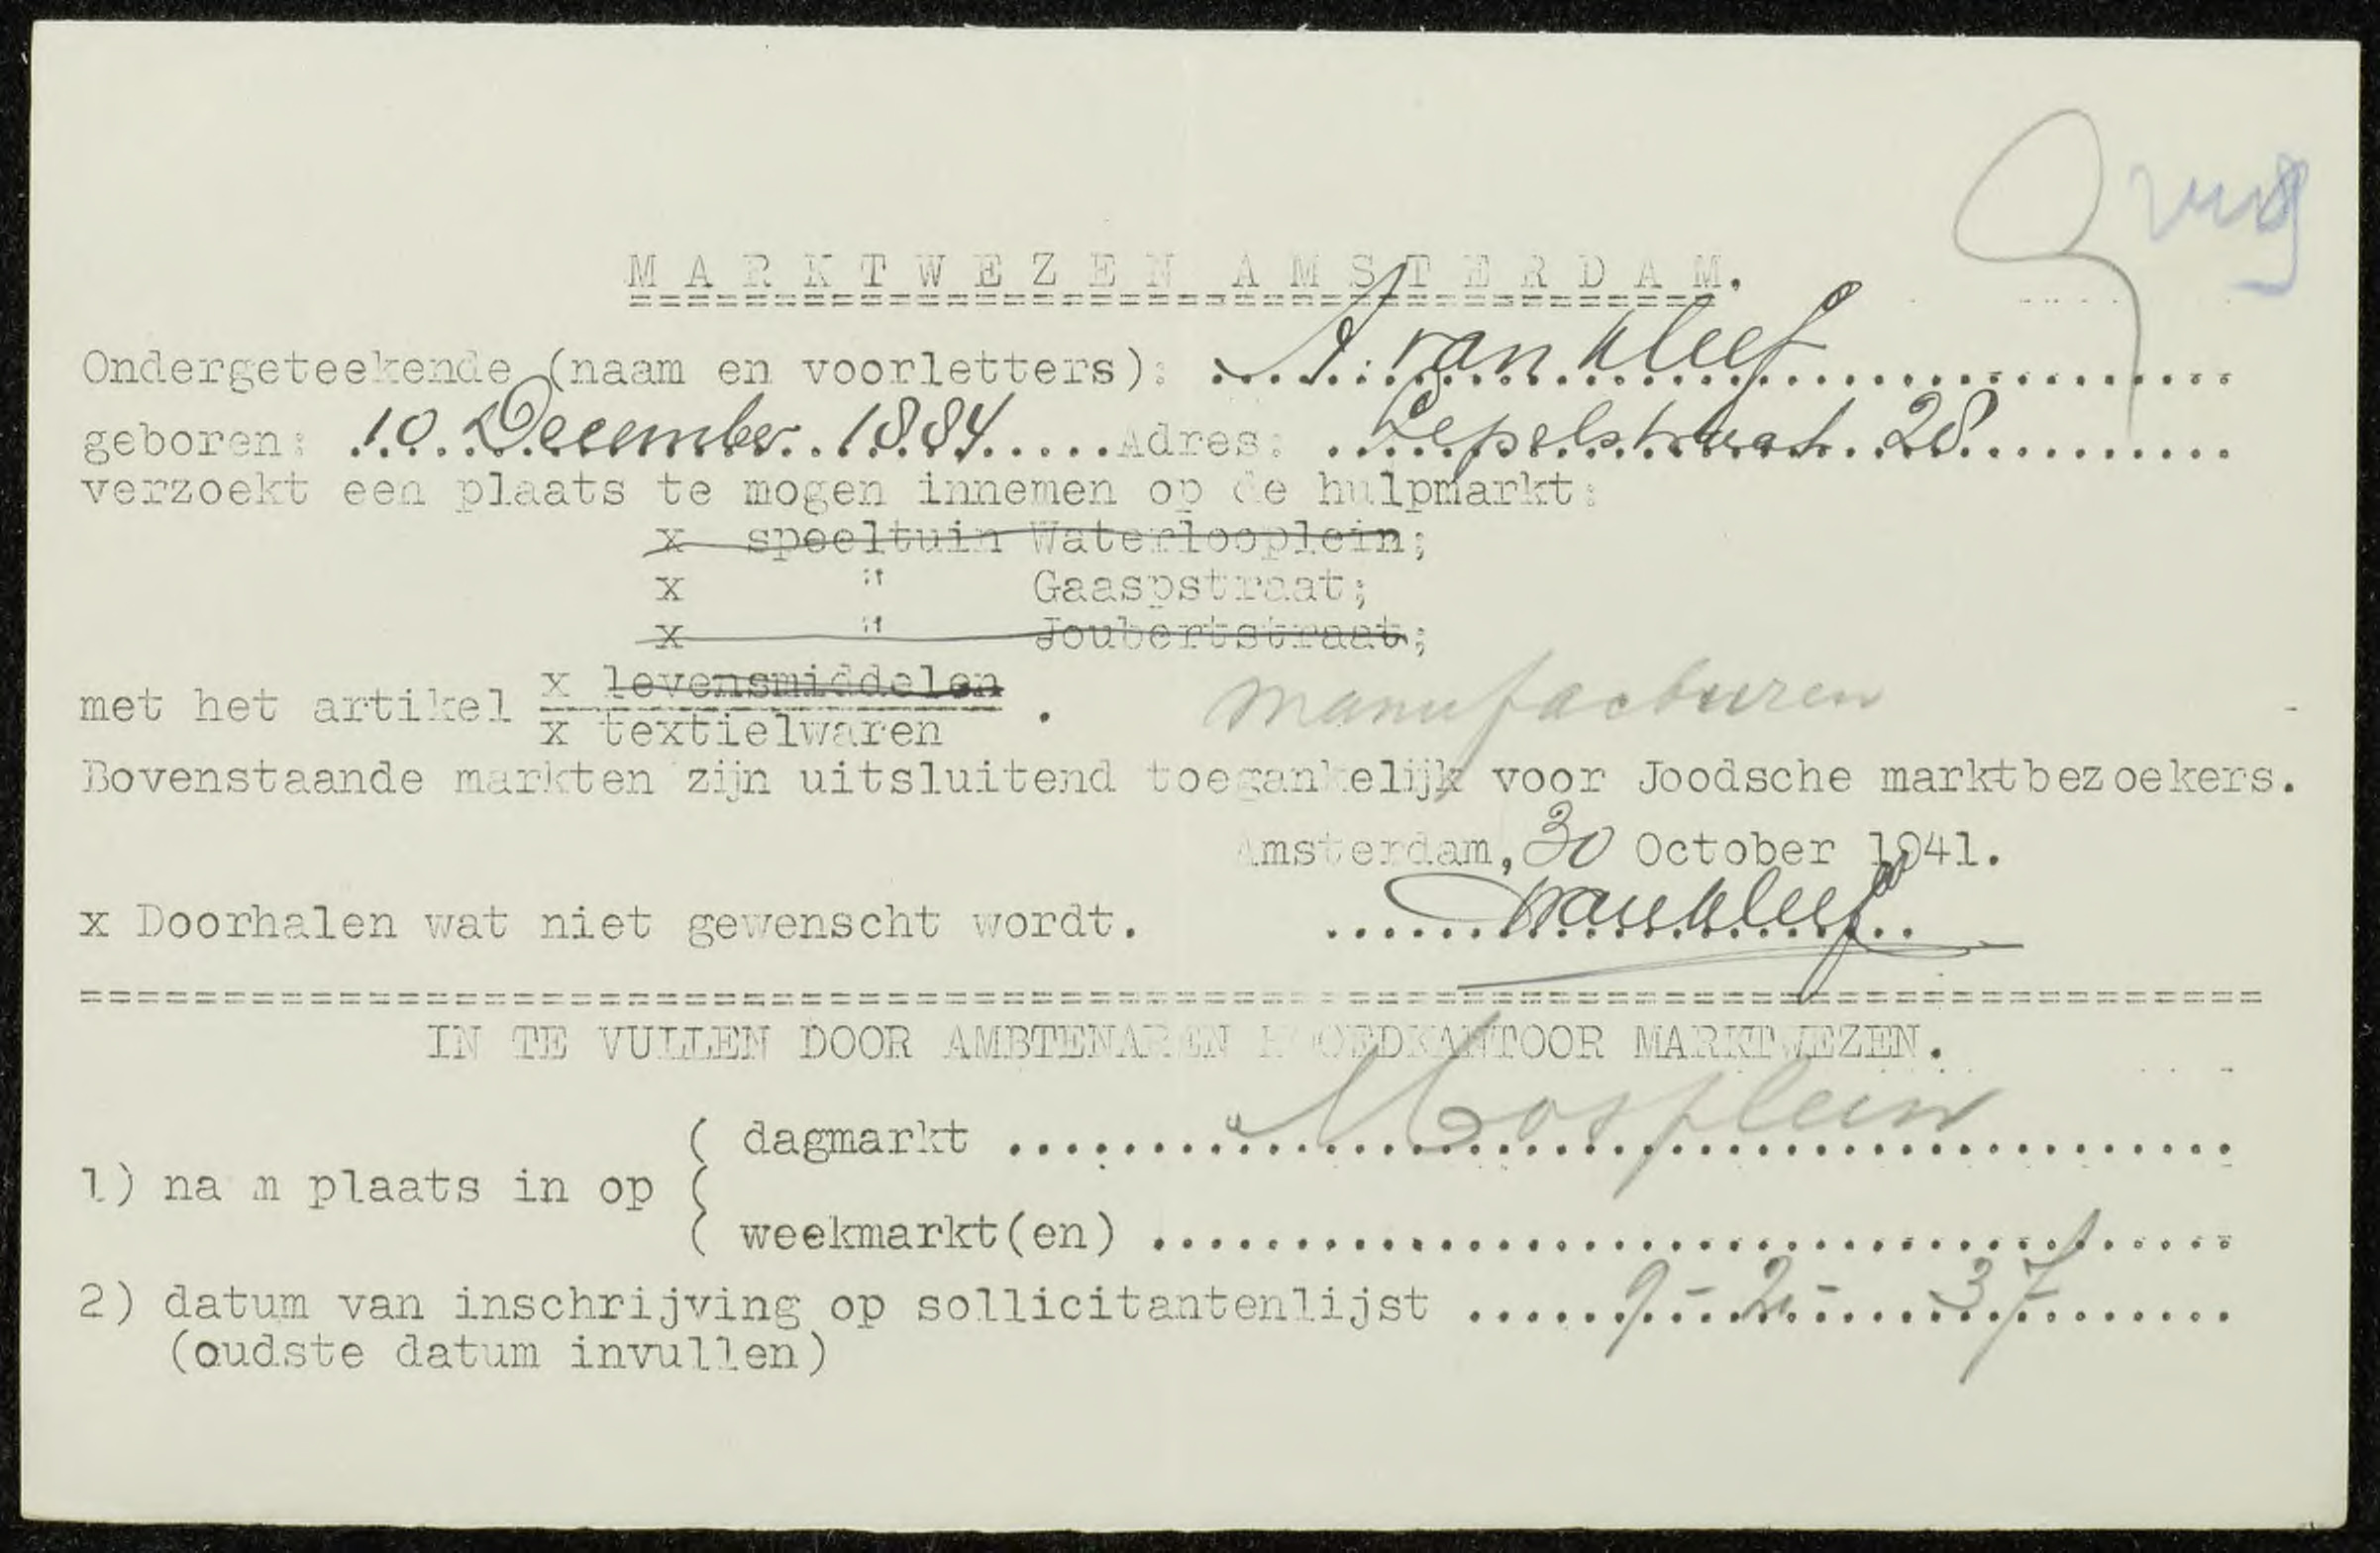 MARKTWEZEN AMSTERDAM.
Ondergeteekende (naam en voorletters): A. van Kleef
geboren: 10 December 1884 Adres: Lepelstraat 28
verzoekt een plaats te mogen innemen op de hulpmarkt:
x speeltuin Waterlooplein;
x " Gaaspstraat;
x " Joubertstraat;
met het artikel x levensmiddelen
x textielwaren . manufacturen
Bovenstaande markten zijn uitsluitend toegankelijk voor Joodsche marktbezoekers.
Amsterdam, 30 October 1941.
x Doorhalen wat niet gewenscht wordt. van Kleef
IN TE VULLEN DOOR AMBTENAREN HOOFDKANTOOR MARKTWEZEN.
( dagmarkt Mosplein
1) na m plaats in op (
( weekmarkt(en)
2) datum van inschrijving op sollicitantenlijst 9-2-37
(oudste datum invullen)